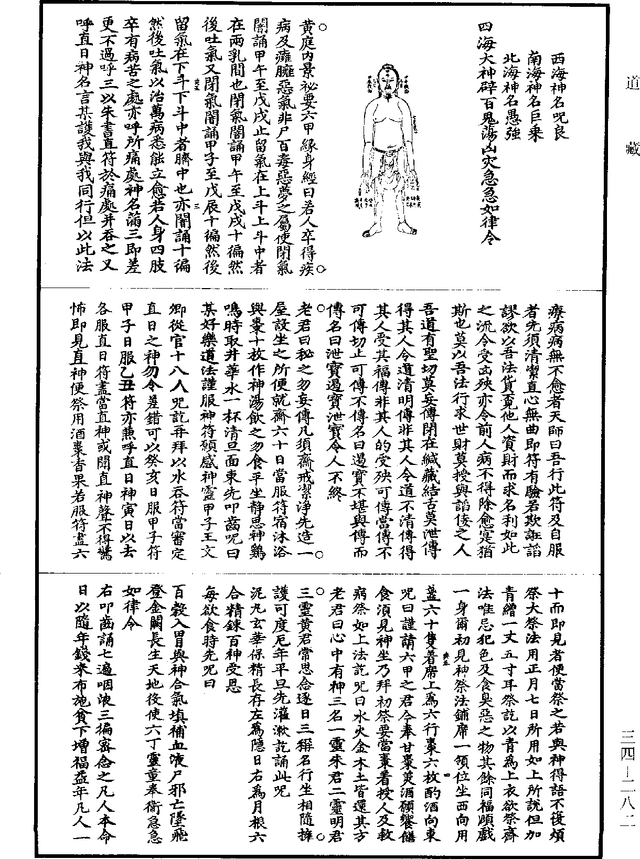 道藏
西海神名呪良
南海神名巨乘
北海神名愚強
四海大神辟百鬼蕩凶灾急急如律令
黃庭內景祕要六甲緣身經曰若人卒得疾
病及癰腫惡氣非尸百毒惡夢之屬使閉氣
闇誦甲午至戊戌止留氣在上斗上斗中者
在兩乳間也閉氣闇誦甲午至戊戌十徧然
後吐氣又閉氣闇誦甲子至戊辰十徧然後
留氣在下斗下斗中者臍中也亦闇誦十徧
然後吐氣以治萬病悉能立愈若人身四肢
卒有病苦之處亦呼所痛處神名誦三即差
更不過呼三以朱書直符於痛處并吞之又
呼直日神名言某護我與我同行但以此法
療病病無不愈者天師曰吾行此符及自服
者先須清潔直心無曲即符有驗若欺誑諂
謬欲以吾法貨賣他人資財而求名利如此
之流令受凶殃亦令前人病不得除愈寔猶
斯也莫以吾法行求世財莫授與諂佞之人
吾道有聖切莫妄傳閉在緘藏結舌莫泄傳
得其人令道清明傳非其人令道不清傳得
其人受其福傳非其人的受殃可傳當傳不
可傳切止可傳不傳名曰遏寶不堪與傳而
傳名曰泄寶遏寶泄寶令人不終
老君曰秘之勿妄傳凡須齋戒潔淨先造一
屋設坐之所便就齋六十日當服符宿沐浴
與棗十枚作神湯飲之勿食平坐靜思神鷄
鳴時取井華水一杯清旦面東先叩齒呪曰
某好樂道法謹服神符願感神靈甲子王文
卿從官十八人呪訖再拜以水吞符當審定
直日之神勿令差錯可以癸亥日服甲子符
甲子日服乙丑符亦燕呼直日神寅日以去
各服直日符盡當直神或聞直神聲不得驚
怖即見直神便祭用酒棗香果若服符盡六
十而即見者便當祭之若與神得語不復煩
祭大祭法用正月七日所用如上所說但加
青繒一丈五寸耳祭訖以青為上衣欲祭齊
法唯忌犯色及食臭惡之物其餘同福順戲
一身爾初見神祭法鋪席一領位坐西向用
盞六十隻著席上為六行棗六枚酌酒向東
呪曰謹請六甲之君今奉甘棗羙酒願饗餘
食須見神坐乃拜初祭要當棗著授人及救
病祭如上法訖呪曰水火金木土皆還其方
老君曰心中有神三名一靈朱君二靈明君
三靈黃君常思念逐日三稱名行坐相隨擁
護可度厄年平旦先灌漱訖誦此呪
泥丸玄華保精長存左為隱日右為月根六
合精鍊百神受恩
每欲食時先呪曰
百穀入胃與神合氣填補血液尸邪亡墜飛
登金闕長生天地後使六丁靈童奉衛急急
如律令
右叩齒誦七遍咽液三徧審念之凡人本命
日以隨年錢米布施貧下增福益年凡人一
三四—二八二